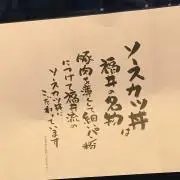 ソースカツ丼は
福井の名物
豚肉を薄くして細いパン粉
につけて福井流の
ソースカツ丼に
こだわっています